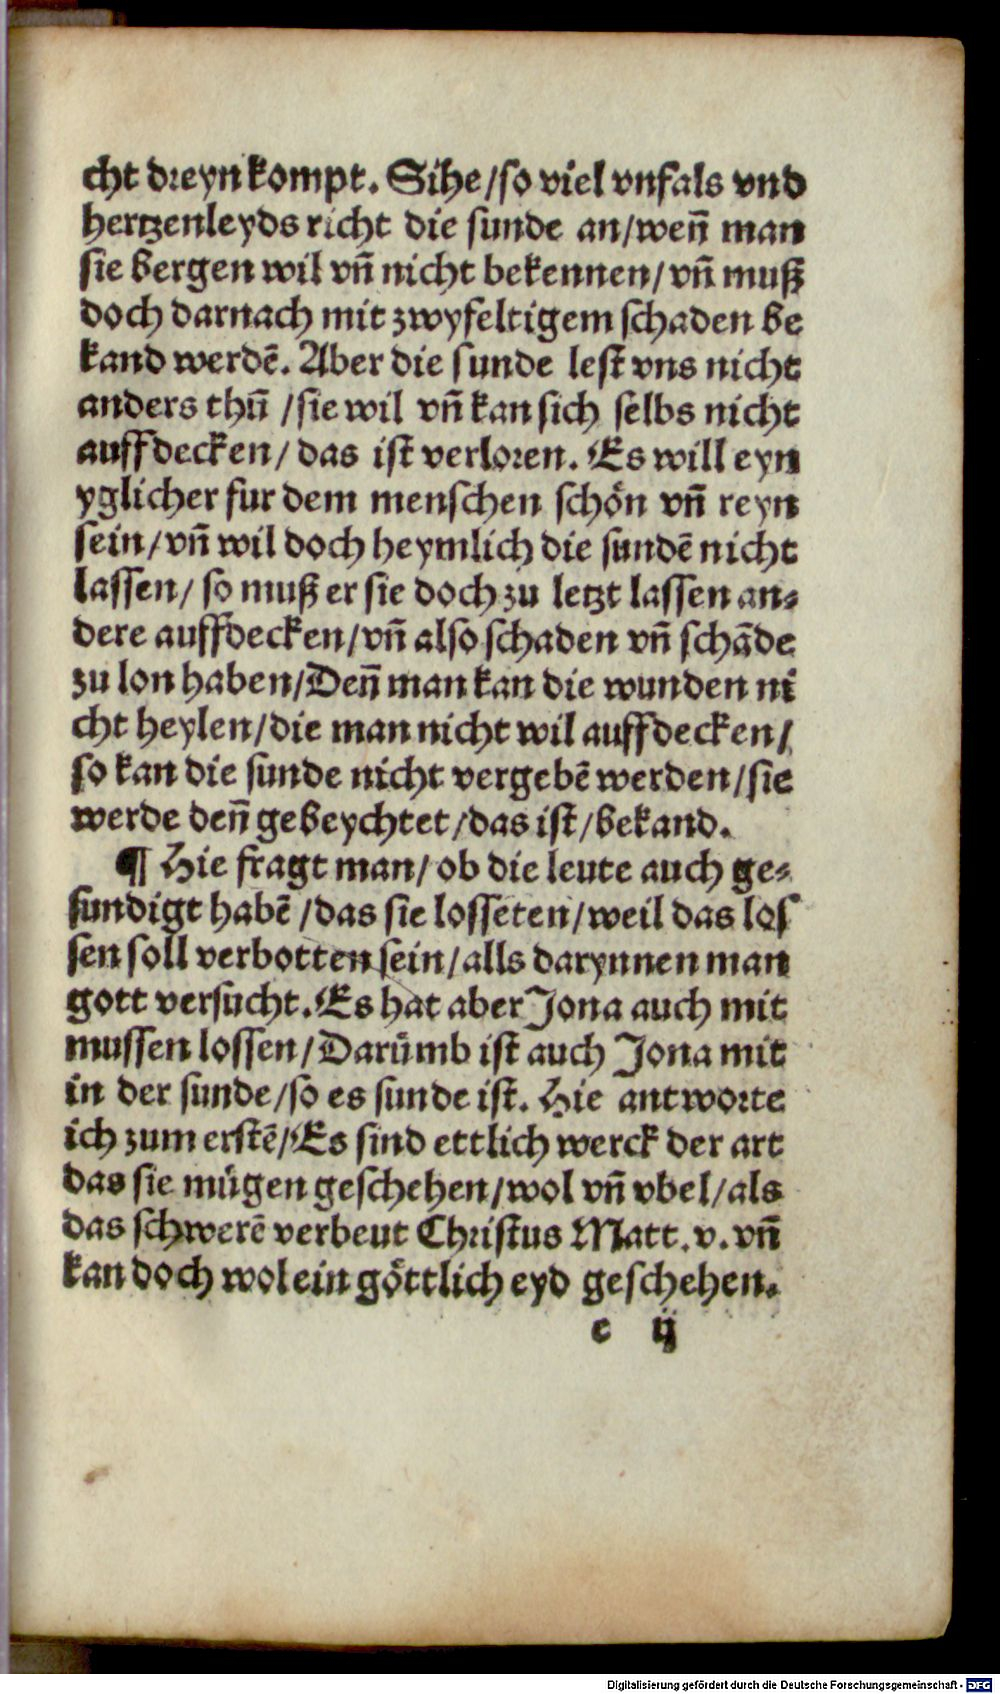 cht dreyn kompt. Sihe/so viel vnfals vnd
hertzenleyds richt die sunde an/wen̄ man
sie bergen wil vn̄ nicht bekennen/vn̄ muß
doch darnach mit zwyfeltigem schaden be
kand werdē. Aber die sunde lest vns nicht
anders thū /sie wil vn̄ kan sich selbs nicht
auffdecken/ das ist verloren. Es will eyn
yglicher fur dem menschen schön vn̄ reyn
sein/vn̄ wil doch heymlich die sundē nicht
lassen/ so muß er sie doch zu letzt lassen an-
dere auffdecken/vn̄ also schaden vn̄ schāde
zu lon haben/Den̄ man kan die wunden ni
cht heylen/die man nicht wil auffdecken/
so kan die sunde nicht vergebē werden/sie
werde den̄ gebeychtet/das ist/bekand.
¶ Hie fragt man/ ob die leute auch ge-
sundigt habē /das sie losseten/weil das los
sen soll verbotten sein/alls darynnen man
gott versucht. Es hat aber Jona auch mit
mussen lossen/Darümb ist auch Jona mit
in der sunde/so es sunde ist. Hie antworte
ich zum erstē/Es sind ettlich werck der art
das sie mügen geschehen/wol vn̄ vbel/als
das schwerē verbeut Christus Matt. v. vn̄
kan doch wol ein göttlich eyd geschehen.
c ij
Digitalisierung gefördert durch die Deutsche Forschungsgemeinschaft - DFG